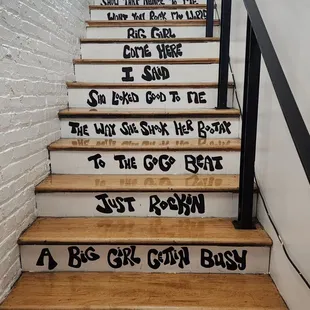 TO ME
YOU ROCK MY
BIG GIRL
COME HERE
I SAID
LOOKED GOOD TO ME
THE WAY SHE SHOK HER BOOTAY
TO THE GOGO BEAT
JUST ROCKIN
A BIG GIRL GETTIN BUSY